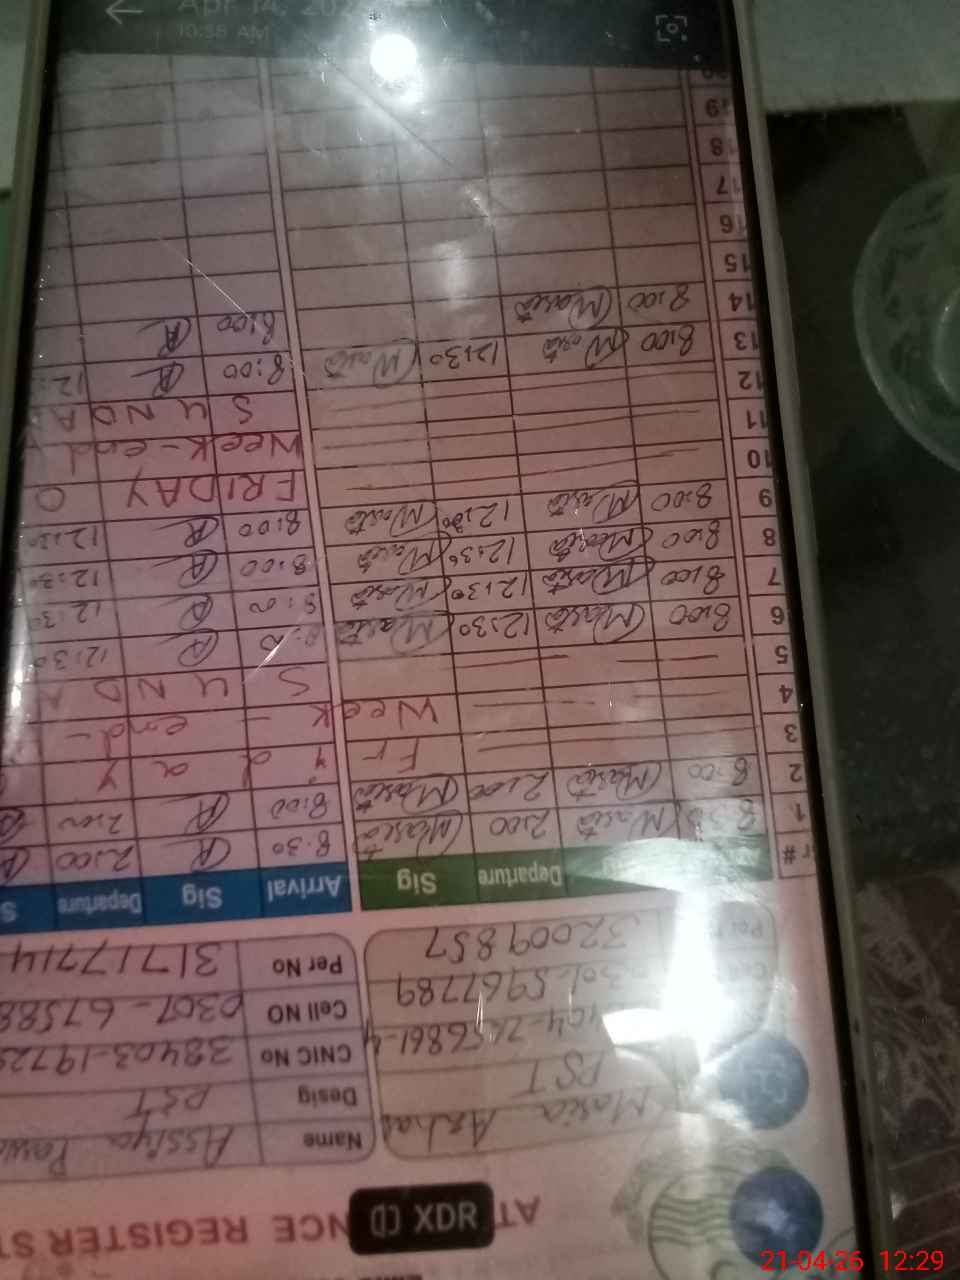 Apr 14, 202
10:58 AM
XDR
ATTENDANCE REGISTER ST
Name Assiya
Maria Azhar
Desig PST
PST
CNIC No 38403-1972
Cell NO 0307-67588
0301-5967789
Per No 31717714
32009857
Sr # Sig Departure Sig
Arrival Sig Departure S
1 8:30 Maria 2:00 Maria 8:30 A 2:00 A
2 8:00 Maria 2:00 Maria 8:00 A 2:00 A
3 Fr i d a y
4 Week - end -
5 S U N D A
6 8:00 Maria 12:30 Maria A 12:30
7 8:00 Maria 12:30 Maria 8:00 A 12:30
8 8:00 Maria 12:30 Maria 8:00 A 12:30
9 8:00 Maria 12:30 Maria 8:00 A 12:30
10 FRIDAY O
11 Week-end
12 S U N D A
13 8:00 Maria 12:30 Maria 8:00 A 12:
14 8:00 Maria 8:00 A
15
16
17
18
19
20
21-04-26 12:29